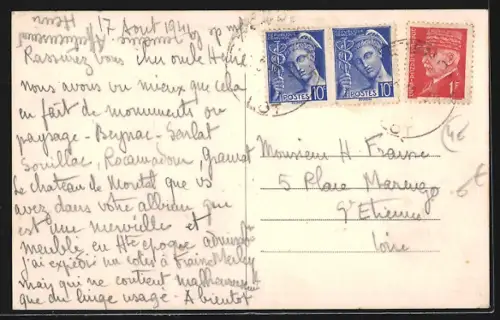 17 Août 1941
Rassurez vous cher oncle Henri
nous avons vu mieux que cela
en fait de monuments ou
paysage - Beynac - Sarlat
Souillac, Rocamadour, Gramat
Le chateau de Montal que vs
avez dans votre album que
est une merveille et
meublé en Hte époque
j'ai expédié un colis à
mais qui ne contient malheureusement
que du linge usagé - A bientôt
Affectueusement
Henri
POSTES 10c
POSTES 10c
1F
LOT
Monsieur H. Fraisse
5 Place Marengo
St Etienne
Loire